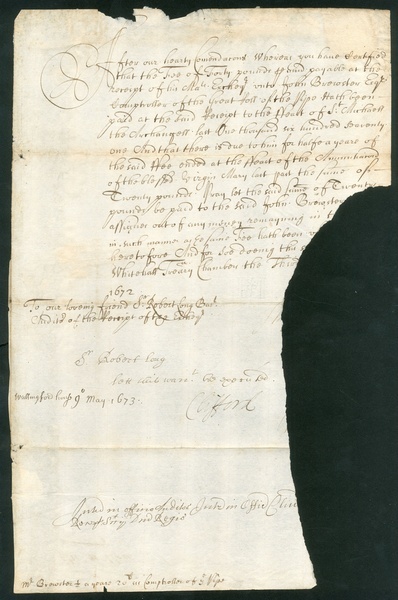 After our hearty Comendacons Whereas you have Certified
that the Fee of Forty pounds p Ann payable at the
receipt of his Ma.ties Excheqr unto John Brewster Esqr
Comptroller of the Great Roll of the Pipe hath been
paid at the said Receipt to the Feast of St. Michaell
the Archangell last One thousand six hundred Seventy
one And that there is due to him for halfe a yeare of
the said Fee ended at the Feast of the Annunciacon
of the blessed Virgin Mary last past the sume of
Twenty pounds. Pray let the said sume of Twenty
pounds be paid to the said John Brewster
assignes out of any money remaining in
in such manner as the same Fee hath been
heretofore And for soe doeing this
Whitehall Treary Chamber the
1672
To our loveing friend Sr Robert Long Bart
Auditor of the Receipt of the Excheqr
Sr Robert Long
lett this warrt. be executed.
Wallingford house 9o May 1673.
Clifford
Mr Brewster ½ a yeare 20li Comptroller of ye Pipe